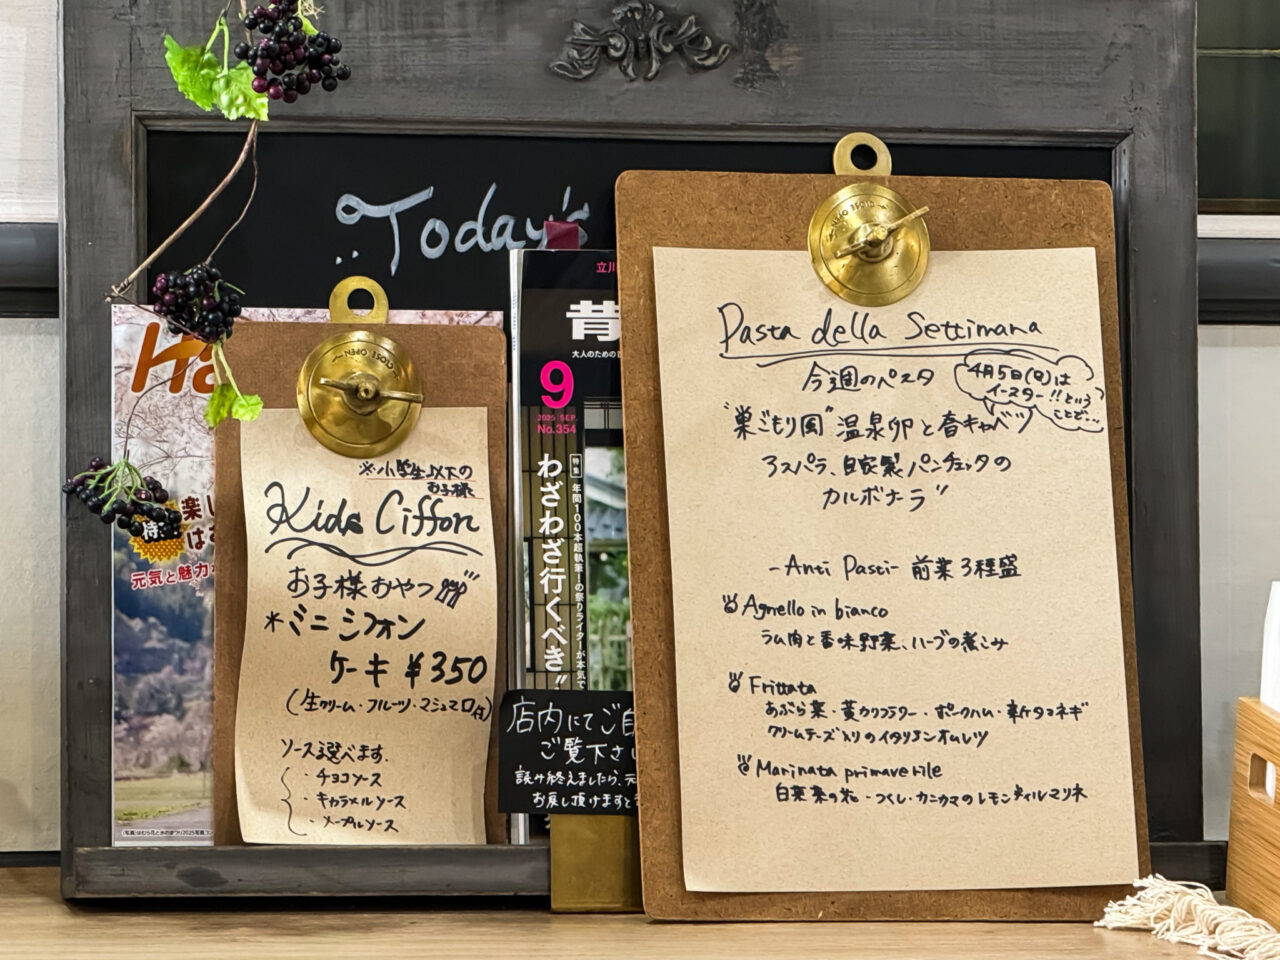 Today's
CLOSE OPEN
※小学生以下の
お子様
Kids Ciffon
お子様おやつ
*ミニシフォン
ケーキ ¥350
(生クリーム・フルーツ・マシュマロ付)
ソース選べます.
・チョコソース
・キャラメルソース
・メープルソース
楽し
は
元気と魅力
立川
昔
大人のための
9
2025 SEP.
No.354
特集
年間100本超執筆!の祭りライターが本気で
わざわざ行くべき"
店内にてご自
ご覧下さい
読み終えましたら、元
お戻し頂けますと
CLOSE OPEN
Pasta della Settimana
今週のパスタ
4月5日(日)は
イースター!!という
ことで...
"巣ごもり風"温泉卵と春キャベツ
アスパラ、自家製パンチェッタの
カルボナーラ"
-Anti Pasti- 前菜3種盛
Agnello in bianco
ラム肉と香味野菜、ハーブの煮こみ
Frittata
あぶら菜・黄カリフラワー・ポークハム・新タマネギ
クリームチーズ入りのイタリアンオムレツ
Marinata primaverile
白菜菜の花・つくし・カニカマのレモンディルマリネ